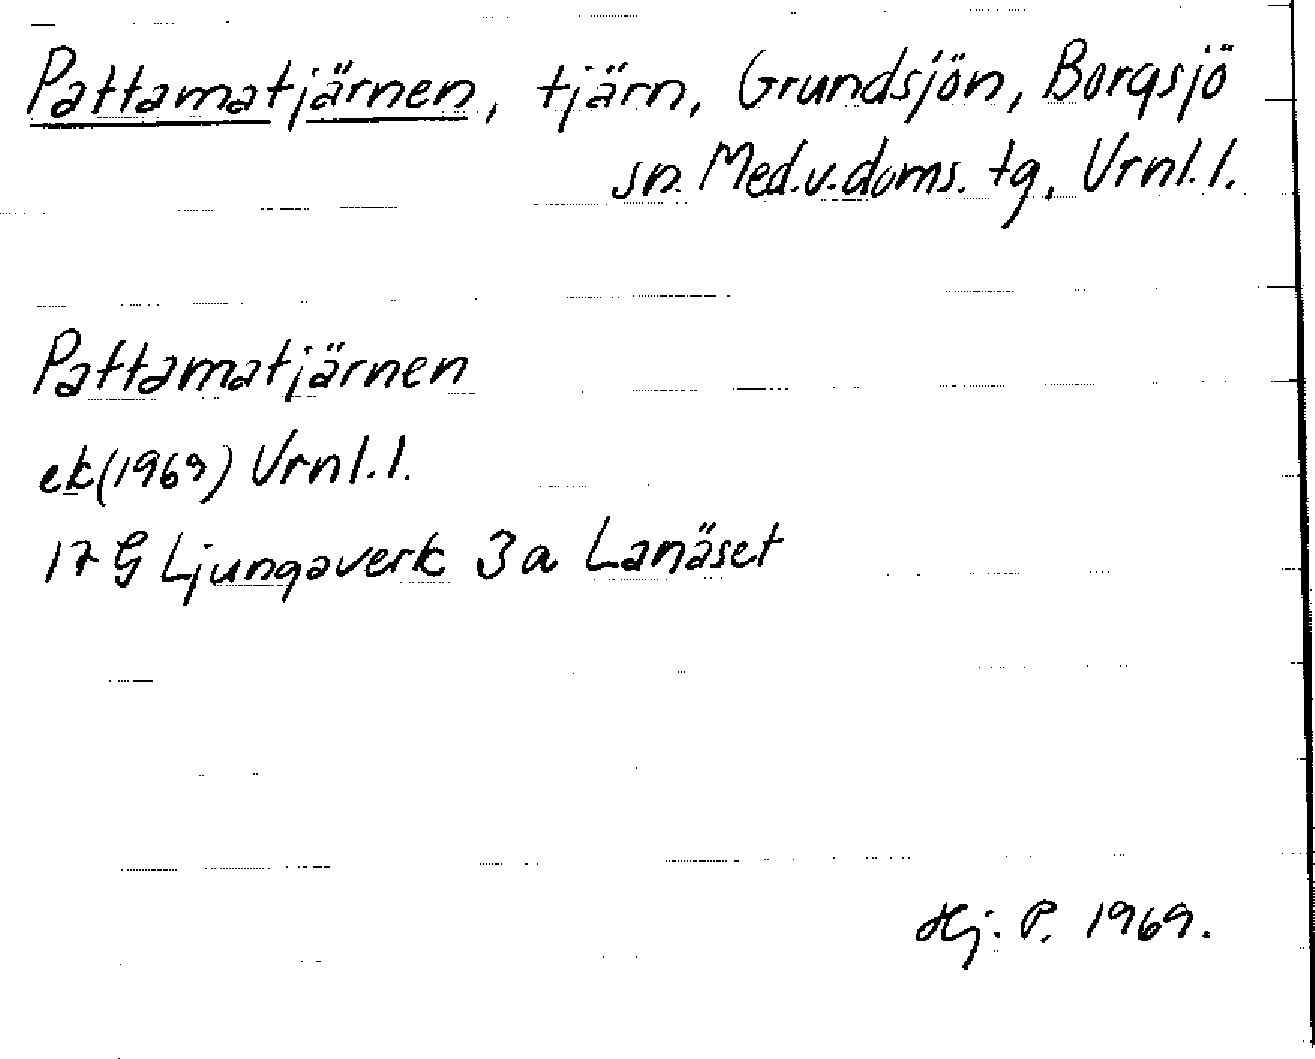 Pattamatjärnen, tjärn, Grundsjön, Borgsjö
sn. Med.v.doms. tg. Vrnl.l.
Pattamatjärnen
ek(1969) Vrnl.l.
17 G Ljungaverk 3a Lanäset
Hj. P. 1969.